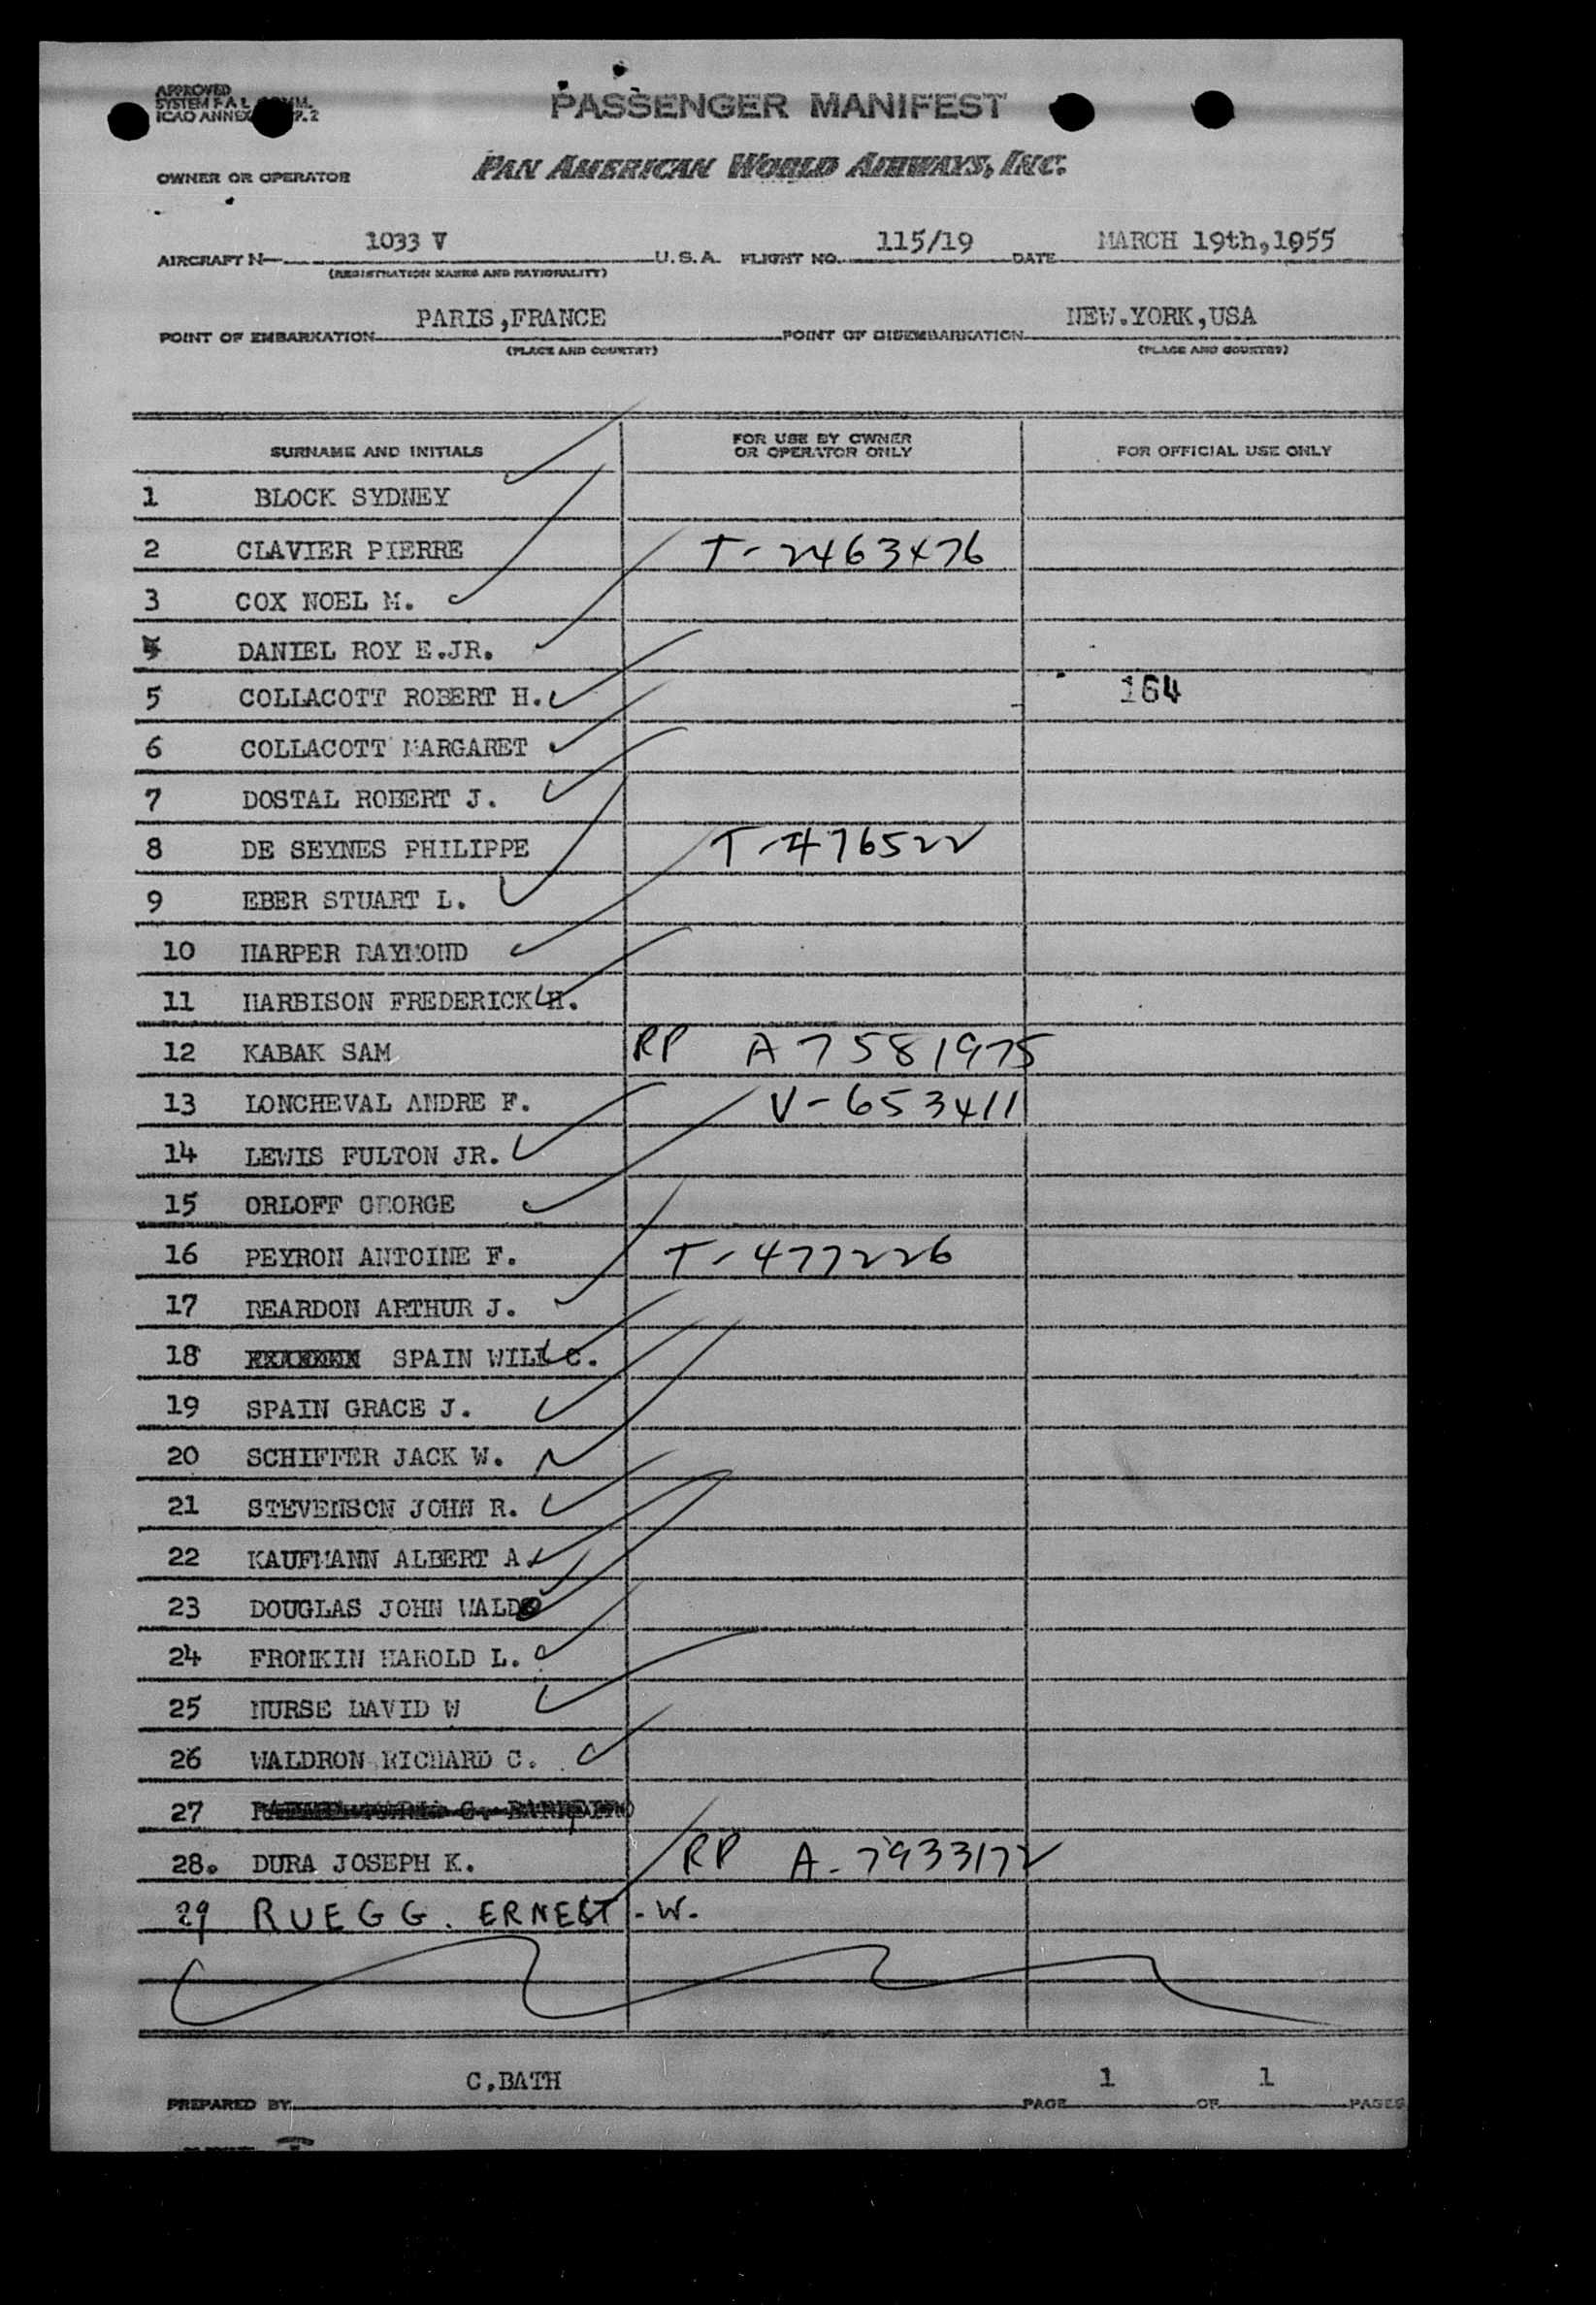 APPROVED
SYSTEM F A L COMM.
ICAO ANNEX P. 2
PASSENGER MANIFEST
OWNER OR OPERATOR PAN AMERICAN WORLD AIRWAYS, INC.
AIRCRAFT N 1033 V U.S.A. FLIGHT NO. 115/19 DATE MARCH 19th,1955
(REGISTRATION MARKS AND NATIONALITY)
POINT OF EMBARKATION PARIS,FRANCE POINT OF DISEMBARKATION NEW.YORK,USA
(PLACE AND COUNTRY) (PLACE AND COUNTRY)
SURNAME AND INITIALS FOR USE BY OWNER OR OPERATOR ONLY FOR OFFICIAL USE ONLY
1 BLOCK SYDNEY
2 CLAVIER PIERRE T-2463476
3 COX NOEL M.
4 DANIEL ROY E.JR.
5 COLLACOTT ROBERT H. 164
6 COLLACOTT MARGARET
7 DOSTAL ROBERT J.
8 DE SEYNES PHILIPPE T-476522
9 EBER STUART L.
10 HARPER RAYMOND
11 HARBISON FREDERICK H.
12 KABAK SAM RP A7581975
13 LONCHEVAL ANDRE F. V-653411
14 LEWIS FULTON JR.
15 ORLOFF GEORGE
16 PEYRON ANTOINE F. T-477226
17 REARDON ARTHUR J.
18 SPAIN WILL C.
19 SPAIN GRACE J.
20 SCHIFFER JACK W.
21 STEVENSON JOHN R.
22 KAUFMANN ALBERT A.
23 DOUGLAS JOHN WALDO
24 FROMKIN HAROLD L.
25 NURSE DAVID W
26 WALDRON RICHARD C.
27
28. DURA JOSEPH K. RP A-7933172
29 RUEGG. ERNEST.W.
PREPARED BY C.BATH PAGE 1 OF 1 PAGES